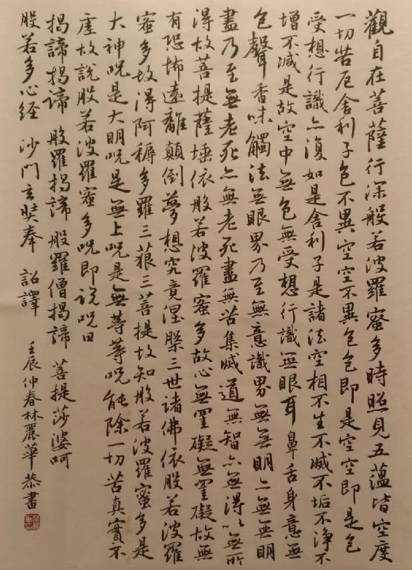 觀自在菩薩行深般若波羅蜜多時照見五蘊皆空度
一切苦厄舍利子色不異空空不異色色即是空空即是色
受想行識亦復如是舍利子是諸法空相不生不滅不垢不淨不
增不減是故空中無色無受想行識無眼耳鼻舌身意無
色聲香味觸法無眼界乃至無意識界無無明亦無無明
盡乃至無老死亦無老死盡無苦集滅道無智亦無得以無所
得故菩提薩埵依般若波羅蜜多故心無罣礙無罣礙故無
有恐怖遠離顛倒夢想究竟涅槃三世諸佛依般若波羅
蜜多故得阿耨多羅三藐三菩提故知般若波羅蜜多是
大神呪是大明呪是無上呪是無等等呪能除一切苦真實不
虛故說般若波羅蜜多呪即說呪曰
揭諦揭諦 般羅揭諦 般羅僧揭諦 菩提莎婆呵
般若多心經 沙門玄奘奉 詔譯 壬辰仲春林麗華恭書